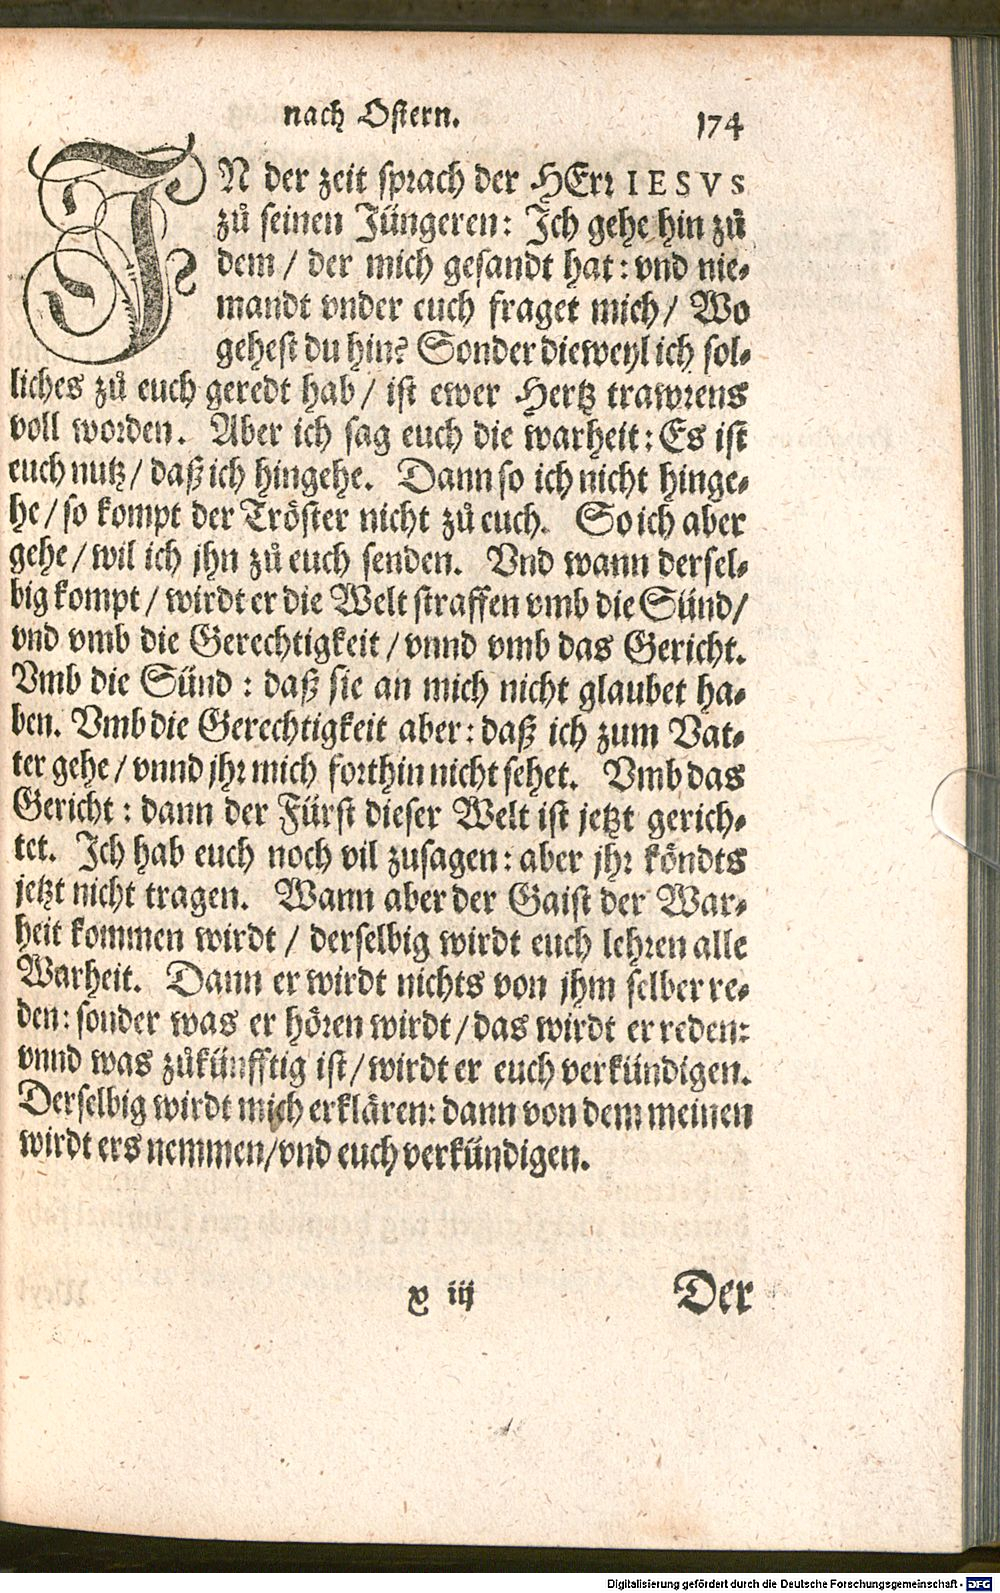 nach Ostern. 174
IN der zeit sprach der HErr IESVS
zů seinen Jüngeren: Ich gehe hin zů
dem / der mich gesandt hat: vnd nie-
mandt vnder euch fraget mich / Wo
gehest du hin? Sonder dieweyl ich sol-
liches zů euch geredt hab / ist ewer Hertz trawrens
voll worden. Aber ich sag euch die warheit: Es ist
euch nutz / daß ich hingehe. Dann so ich nicht hinge-
he / so kompt der Tröster nicht zů euch. So ich aber
gehe / wil ich jhn zů euch senden. Vnd wann dersel-
big kompt / wirdt er die Welt straffen vmb die Sünd /
vnd vmb die Gerechtigkeit / vnnd vmb das Gericht.
Vmb die Sünd : daß sie an mich nicht glaubet ha-
ben. Vmb die Gerechtigkeit aber: daß ich zum Vat-
ter gehe / vnnd jhr mich forthin nicht sehet. Vmb das
Gericht : dann der Fürst dieser Welt ist jetzt gerich-
tet. Ich hab euch noch vil zusagen: aber jhr köndts
jetzt nicht tragen. Wann aber der Gaist der War-
heit kommen wirdt / derselbig wirdt euch lehren alle
Warheit. Dann er wirdt nichts von jhm selber re-
den: sonder was er hören wirdt / das wirdt er reden:
vnnd was zůkünfftig ist / wirdt er euch verkündigen.
Derselbig wirdt mich erklären: dann von dem meinen
wirdt ers nemmen / vnd euch verkündigen.
x iij Der
Digitalisierung gefördert durch die Deutsche Forschungsgemeinschaft - DFG